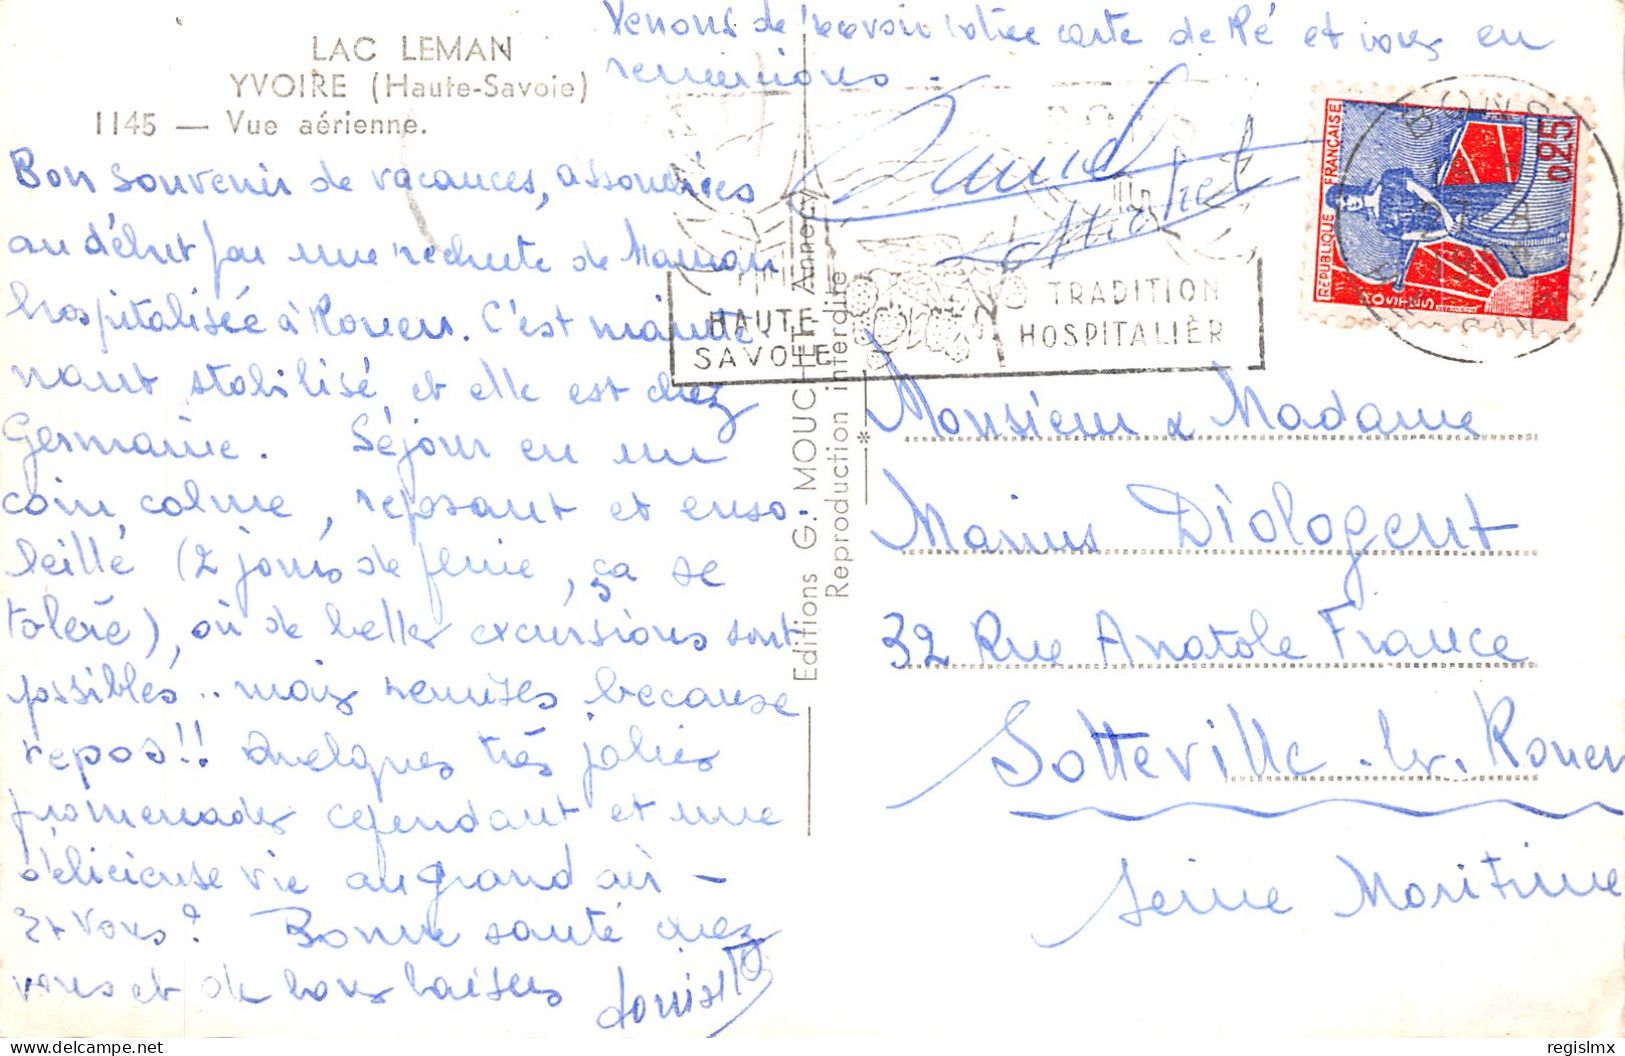 LAC LEMAN
YVOIRE (Haute-Savoie)
1145 — Vue aérienne.
Venons de recevoir votre carte de Ré et vous en
remercions.
Michel
Bon souvenir de vacances, assombries
au début par une rechute de Maman
hospitalisée à Rouen. C'est mainte-
nant stabilisé et elle est chez
Germaine. Séjour en un
coin calme, reposant et enso-
leillé (2 jours de pluie, ça se
tolère), où de belles excursions sont
possibles.. mais remises because
repos!! Quelques très jolies
promenades cependant et une
délicieuse vie au grand air –
Et vous? Bonne santé chez
vous et de bons baisers
HAUTE-
SAVOIE
TRADITION
HOSPITALIÈR
REPUBLIQUE FRANÇAISE
POSTES
0,25
BONS
Editions G. MOUCHET - Annecy
Reproduction interdite
*
Monsieur & Madame
Marius Diologent
32 Rue Anatole France
Sotteville-les-Rouen
Seine Maritime
regislmx
© delcampe.net